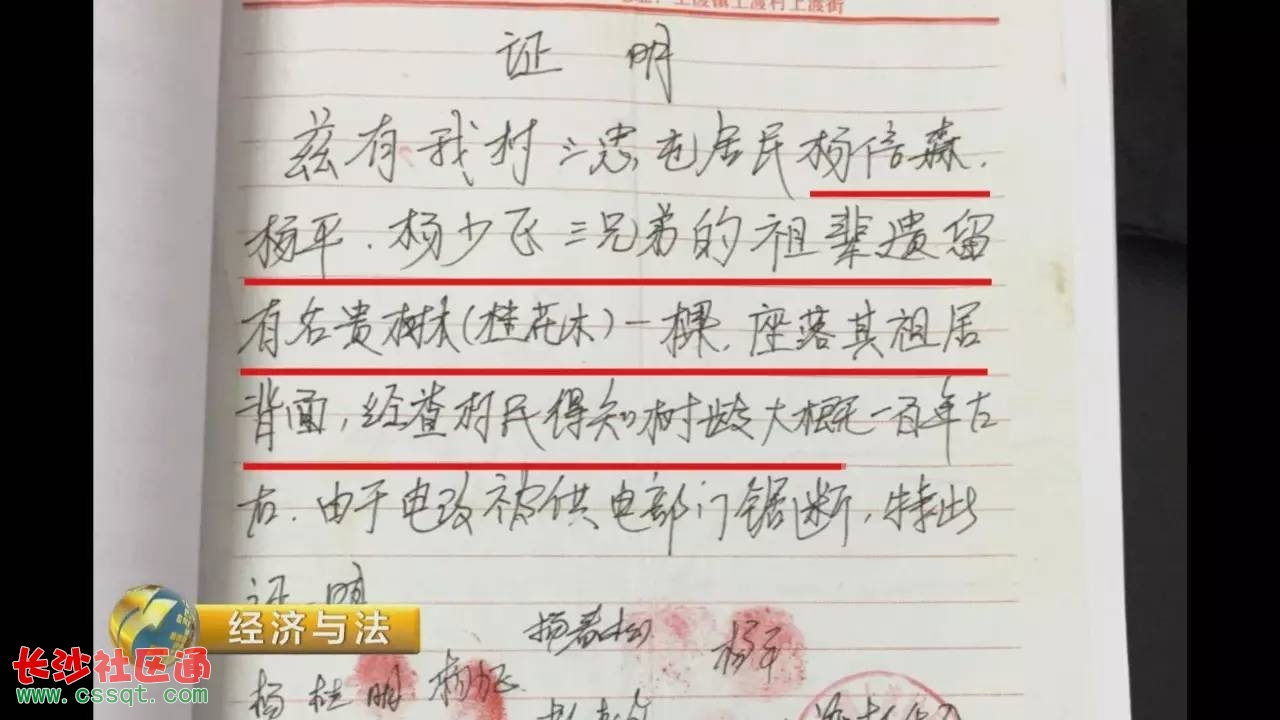 上渡镇上渡村上渡街
证 明
兹有我村三忠屯居民杨倍森、
杨平、杨少飞三兄弟的祖辈遗留
有名贵树木(桂花木)一棵,座落其祖居
背面,经查村民得知树龄大概一百年左
右.由于电改被供电部门锯断,特此
证明
杨春松 杨平
杨桂明
经济与法
长沙社区通
www.cssqt.com